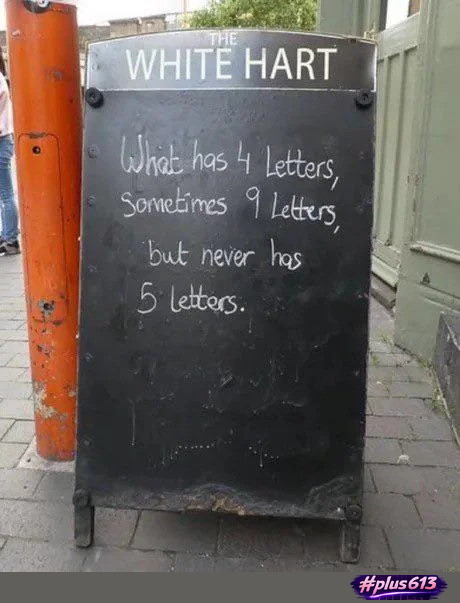 THE
WHITE HART
What has 4 Letters,
Sometimes 9 Letters,
but never has
5 Letters.
#plus613